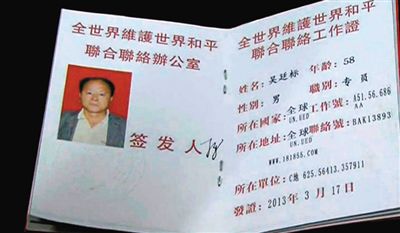 全世界維護世界和平
聯合聯絡辦公室
签发人
全世界維護世界和平
聯合聯絡工作證
姓名 吴廷标 年齡: 58
性别: 男 職别: 专員
所在國家: 全球 工作號: A51.56.686
UN.UED AA
所在地址: 全球 聯絡號: BAK13893
UN.UED
www.181855.COM
所在單位: C地 625.56413.357911
發證: 2013年 3月 17日